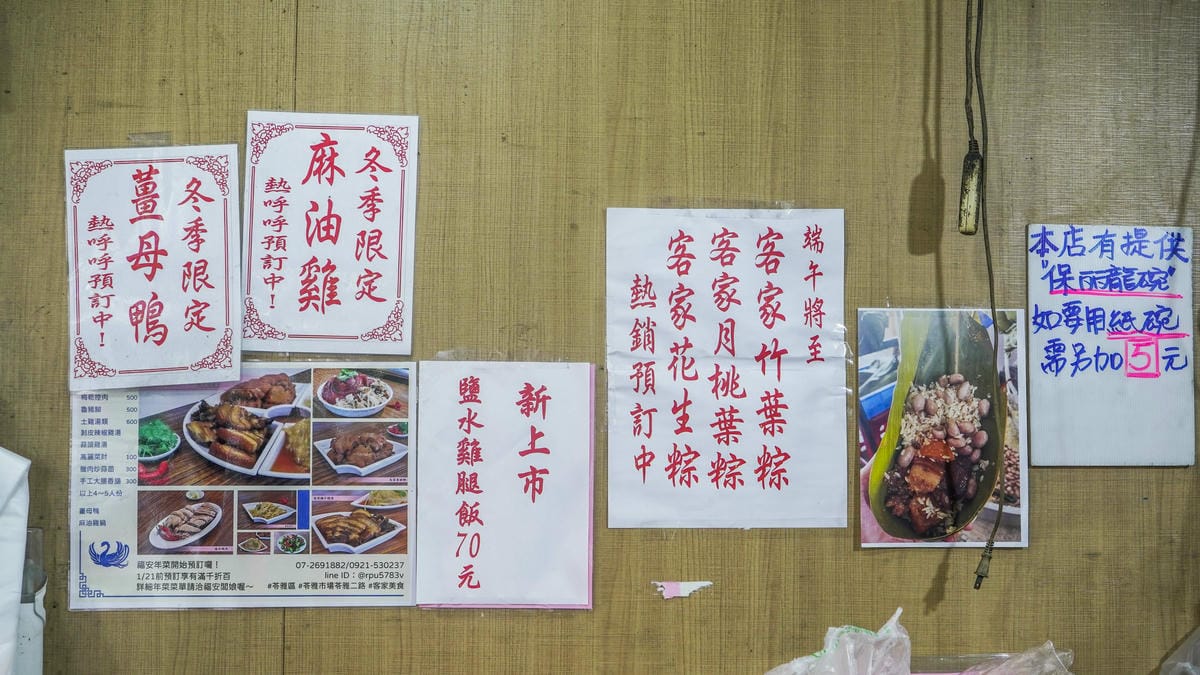 冬季限定
薑母鴨
熱呼呼預訂中！
冬季限定
麻油雞
熱呼呼預訂中！
梅乾控肉 500
魯豬腳 500
土雞湯類 600
剝皮辣椒雞湯
蒜頭雞湯
高麗菜封 100
臘肉炒蒜苗 300
手工大腸香腸 300
以上4～5人份
薑母鴨
麻油雞鍋
福安年菜開始預訂囉！
1/21前預訂享有滿千折百
詳細年菜菜單請洽福安闆娘喔～
07-2691882/0921-530237
line ID：@rpu5783v
#苓雅區 #苓雅市場苓雅二路 #客家美食
新上市
鹽水雞腿飯70元
端午將至
客家竹葉粽
客家月桃葉粽
客家花生粽
熱銷預訂中
本店有提供
"保丽龍碗"
如要用紙碗
需另加5元